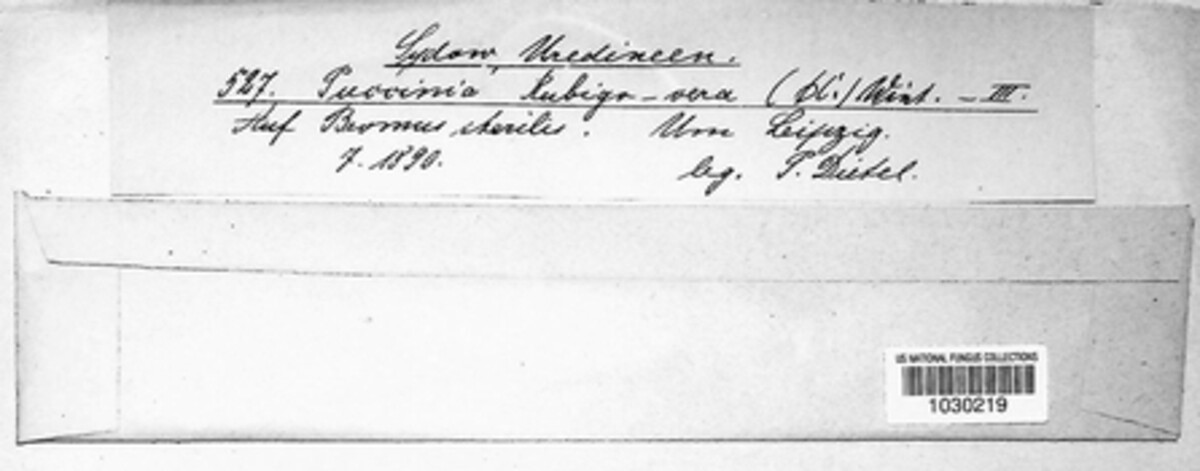 Sydow, Uredineen.
527. Puccinia Rubigo-vera (DC.) Wint. - III.
Auf Bromus sterilis. Um Leipzig.
7. 1890. leg. P. Dietel.
US NATIONAL FUNGUS COLLECTIONS
1030219